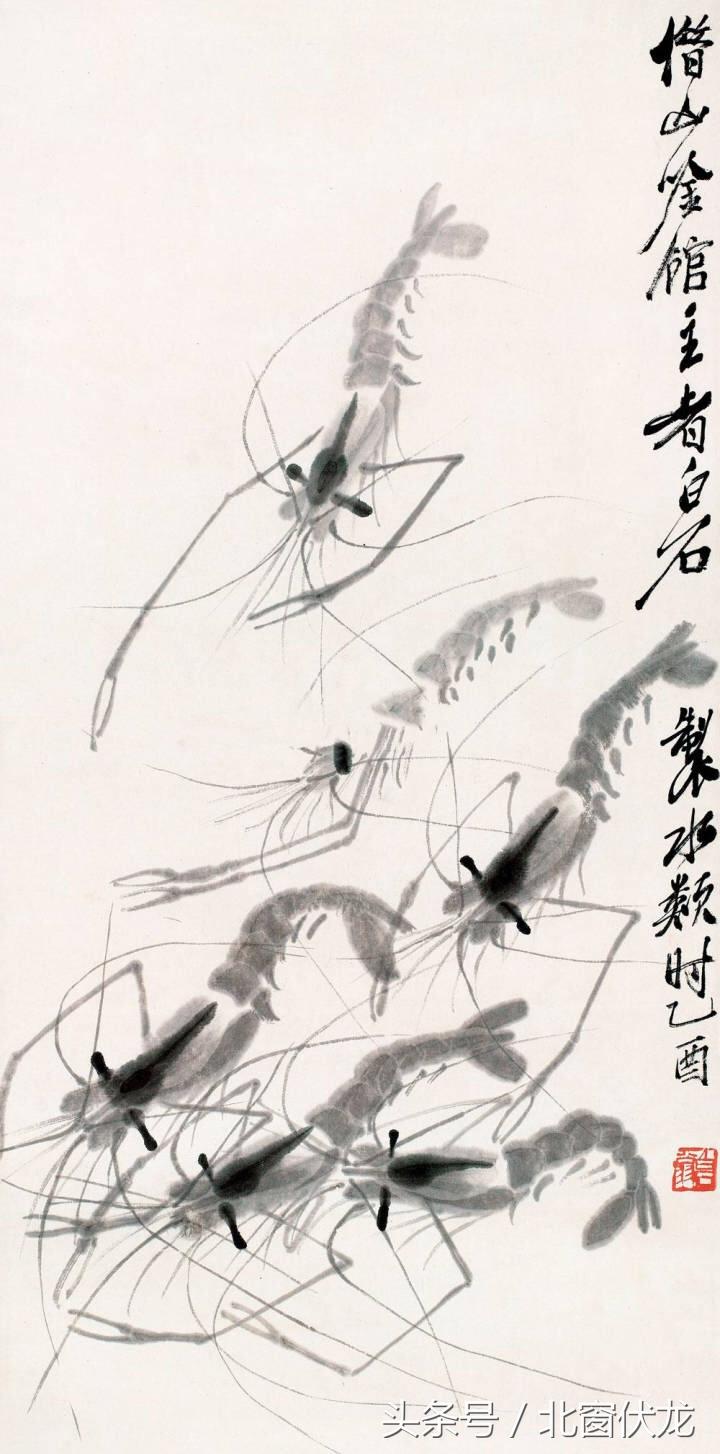 借山唫館主者白石
製水類时乙酉
头条号 / 北窗伏龙